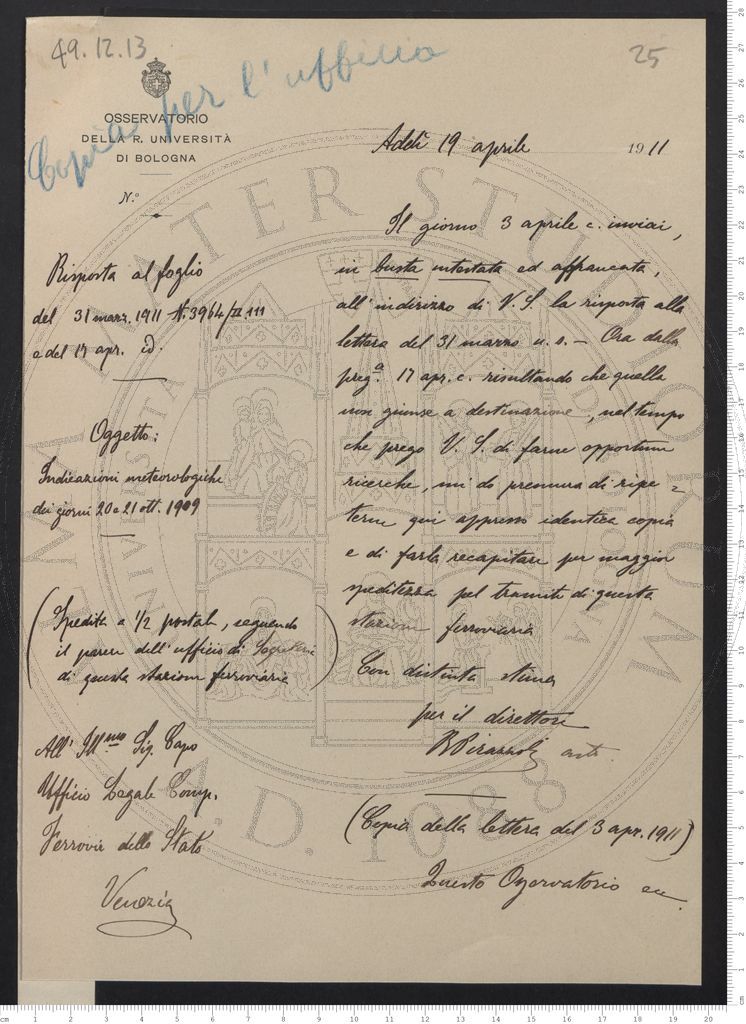 49.12.13
25
Copia per l'ufficio
OSSERVATORIO
DELLA R. UNIVERSITÀ
DI BOLOGNA
N.º
Addì 19 aprile 1911
Risposta al foglio
del 31 marz. 1911 N. 3964/II 111
e del 17 apr. id.
Oggetto:
Indicazioni meteorologiche
dei giorni 20 e 21 ott. 1909
(Spedita a 1/2 postale, seguendo
il parere dell'ufficio di
di questa stazione ferroviaria)
All' Ill.mo Sig. Capo
Ufficio Legale Comp.
Ferrovie dello Stato
Venezia
Il giorno 3 aprile c. inviai,
in busta intestata ed affrancata,
all'indirizzo di V. S. la risposta alla
lettera del 31 marzo u. s. — Ora dalla
preg.a 17 apr. c. risultando che quella
non giunse a destinazione, nel tempo
che prego V. S. di farne opportune
ricerche, mi do premura di ripe=
terne qui appresso identica copia
e di farla recapitare per maggior
speditezza pel tramite di questa
stazione ferroviaria
Con distinta stima
per il direttore
R Pirazzoli ast.
(Copia della lettera del 3 apr. 1911)
Questo Osservatorio ecc.
ALMA MATER STUDIORUM
A.D. 1088